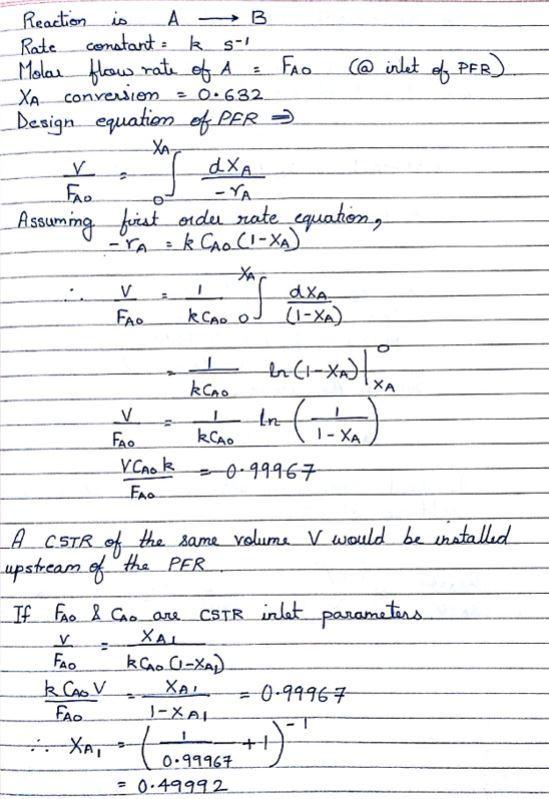 Reaction is A ⟶ B
Rate constant = k s⁻¹
Molar flow rate of A = FAO (@ inlet of PFR)
XA conversion = 0.632
Design equation of PFR ⇒
V/FAO = ∫₀^XA dXA/-rA
Assuming first order rate equation,
-rA = k CAO (1-XA)
∴ V/FAO = 1/kCAO ∫₀^XA dXA/(1-XA)
= 1/kCAO ln(1-XA)|_XA^0
V/FAO = 1/kCAO ln(1/1-XA)
VCAOk/FAO = 0.99967
A CSTR of the same volume V would be installed
upstream of the PFR
If FAO & CAO are CSTR inlet parameters.
V/FAO = XA1/kCAO(1-XA1)
kCAOV/FAO = XA1/1-XA1 = 0.99967
∴ XA1 = (1/0.99967 + 1)⁻¹
= 0.49992